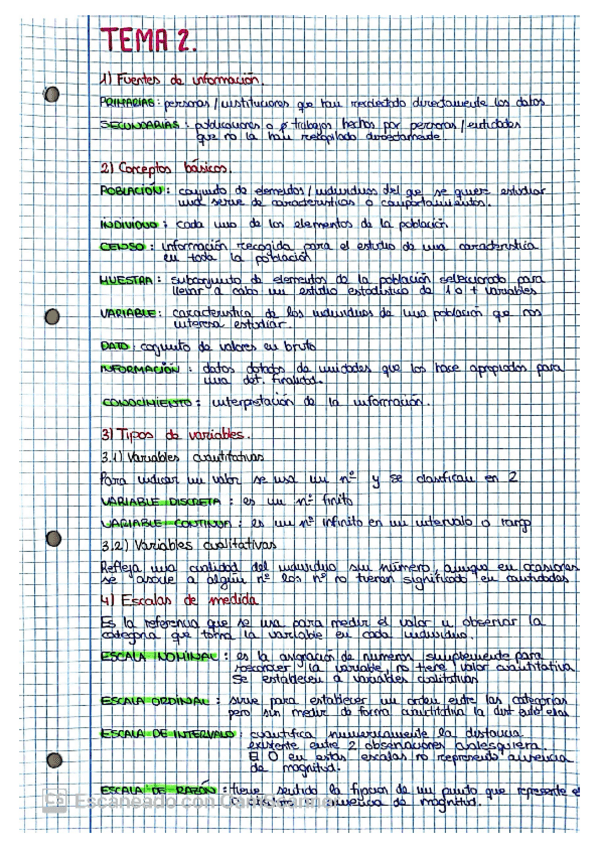 TEMA 2.
1) Fuentes de información.
PRIMARIAS: personas / instituciones que han recolectado directamente los datos
SECUNDARIAS: publicaciones o trabajos hechos por personas / entidades
que no la han recopilado directamente.
2) Conceptos básicos.
POBLACIÓN: conjunto de elementos / individuos del que se quiere estudiar
una serie de características o comportamientos.
INDIVIDUO: cada uno de los elementos de la población
CENSO: información recogida para el estudio de una característica
en toda la población
MUESTRA: subconjunto de elementos de la población seleccionado para
llevar a cabo un estudio estadístico de 1 o + variables
VARIABLE: característica de los individuos de una población que nos
interesa estudiar.
DATO: conjunto de valores en bruto
INFORMACIÓN: datos dotados de unidades que los hace apropiados para
una det. finalidad.
CONOCIMIENTO: interpretación de la información.
3) Tipos de variables.
3.1) Variables cuantitativas
Para indicar un valor se usa un nº y se clasifican en 2
VARIABLE DISCRETA: es un nº finito
VARIABLE CONTINUA: es un nº infinito en un intervalo o rango
3.2) Variables cualitativas
Refleja una cualidad del individuo sin número, aunque en ocasiones
se asocie a algún nº los nº no tienen significado en cantidades
4) Escalas de medida
Es la referencia que se usa para medir el valor u observar la
categoría que toma la variable en cada individuo.
ESCALA NOMINAL: es la asignación de números simplemente para
reconocer la variable, no tiene valor cuantitativa
Se establece a variables cualitativas
ESCALA ORDINAL: sirve para establecer un orden entre las categorías
pero sin medir de forma cuantitativa la dist entre ellas
ESCALA DE INTERVALO: cuantifica numericamente la distancia
existente entre 2 observaciones cualesquiera.
El 0 en estas escalas no representa ausencia
de magnitud.
ESCALA DE RAZÓN: tiene sentido la fijación de un punto que represente el
ausencia de magnitud.
Escaneado con CamScanner